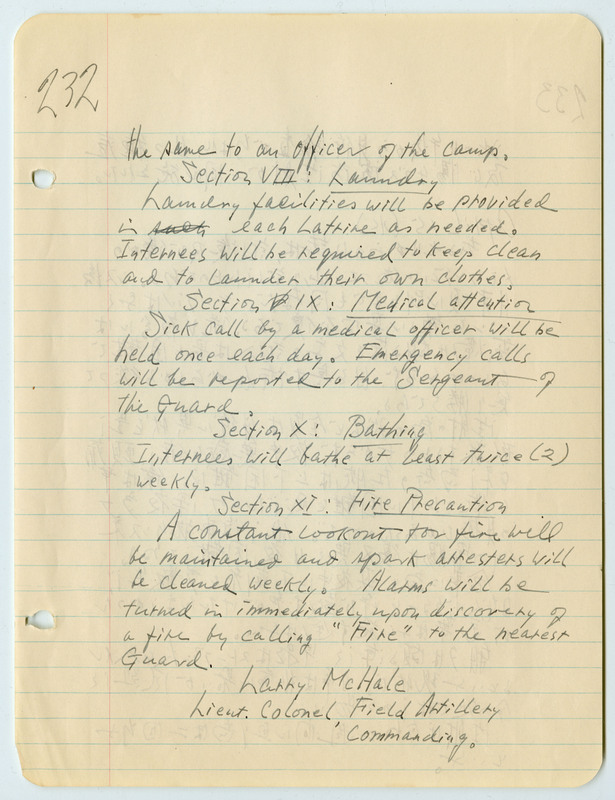 232
the same to an officer of the camp.
Section VIII: Laundry
Laundry facilities will be provided
in such each Latrine as needed.
Internees will be required to keep clean
and to launder their own clothes.
Section IX: Medical attention
Sick call by a medical officer will be
held once each day. Emergency calls
will be reported to the Sergeant of
the Guard.
Section X: Bathing
Internees will bathe at least twice (2)
weekly.
Section XI: Fire Precaution
A constant lookout for fire will
be maintained and spark arresters will
be cleaned weekly. Alarms will be
turned in immediately upon discovery of
a fire by calling "Fire" to the nearest
Guard.
Larry McHale
Lieut. Colonel, Field Artillery
Commanding.